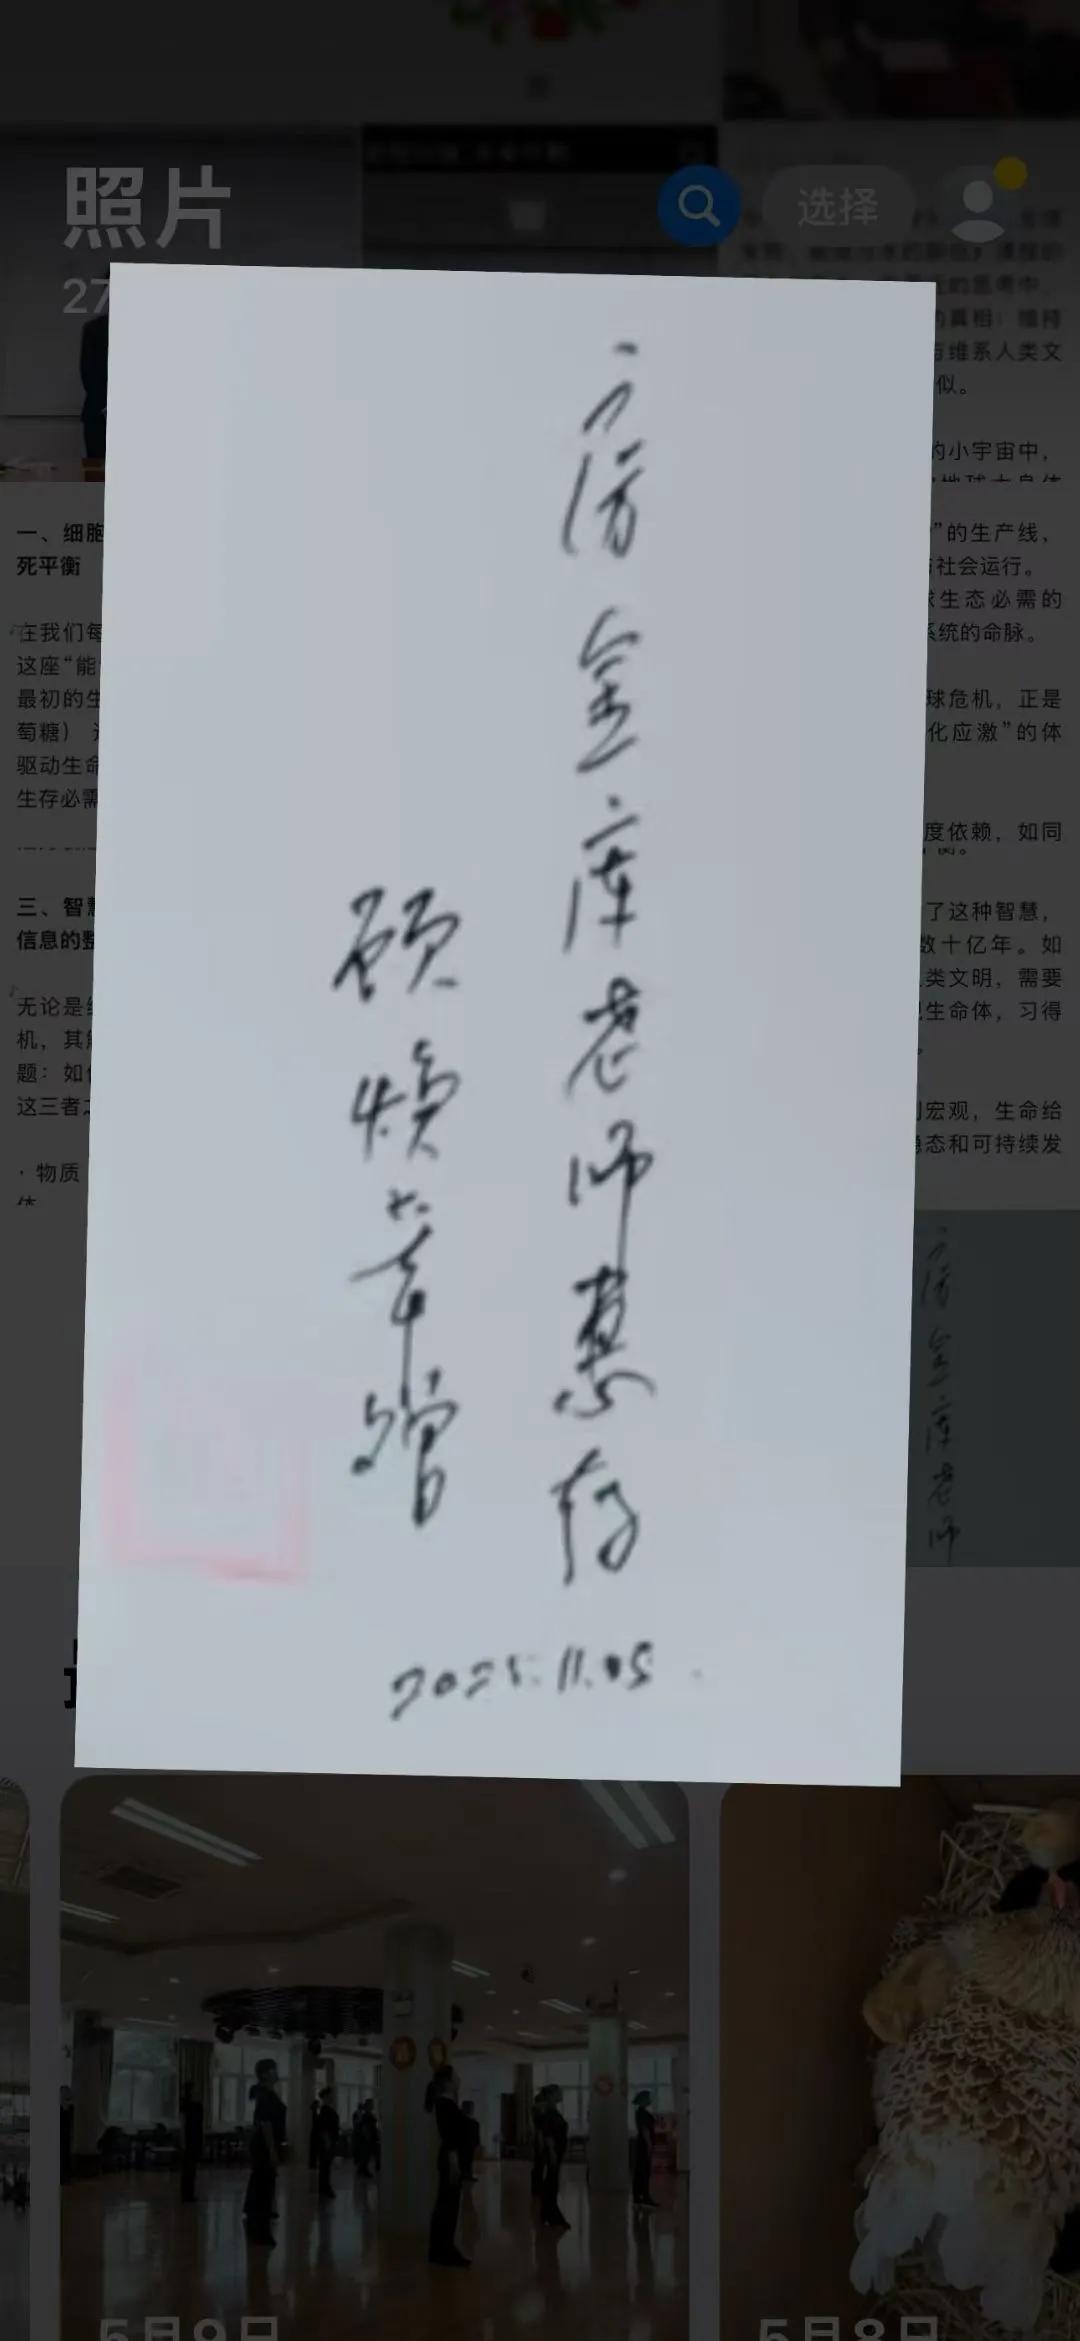 照片
选择
27
一、细胞
死平衡
在我们每
这座“能
最初的生
萄糖）
驱动生命
生存必需
三、智慧
信息的整
无论是细
机，其
题：如何
这三者之
· 物质
体
的思考中，
真相：维持
与维系人类文
似。
的小宇宙中，
”的生产线，
社会运行。
球生态必需的
系统的命脉。
球危机，正是
化应激”的体
度依赖，如同
衡。
了这种智慧，
数十亿年。如
类文明，需要
生命体，习得
宏观，生命给
稳态和可持续发
房金库老师惠存
顾焕章赠
2025.11.05
金库老师
5月9日
5月8日